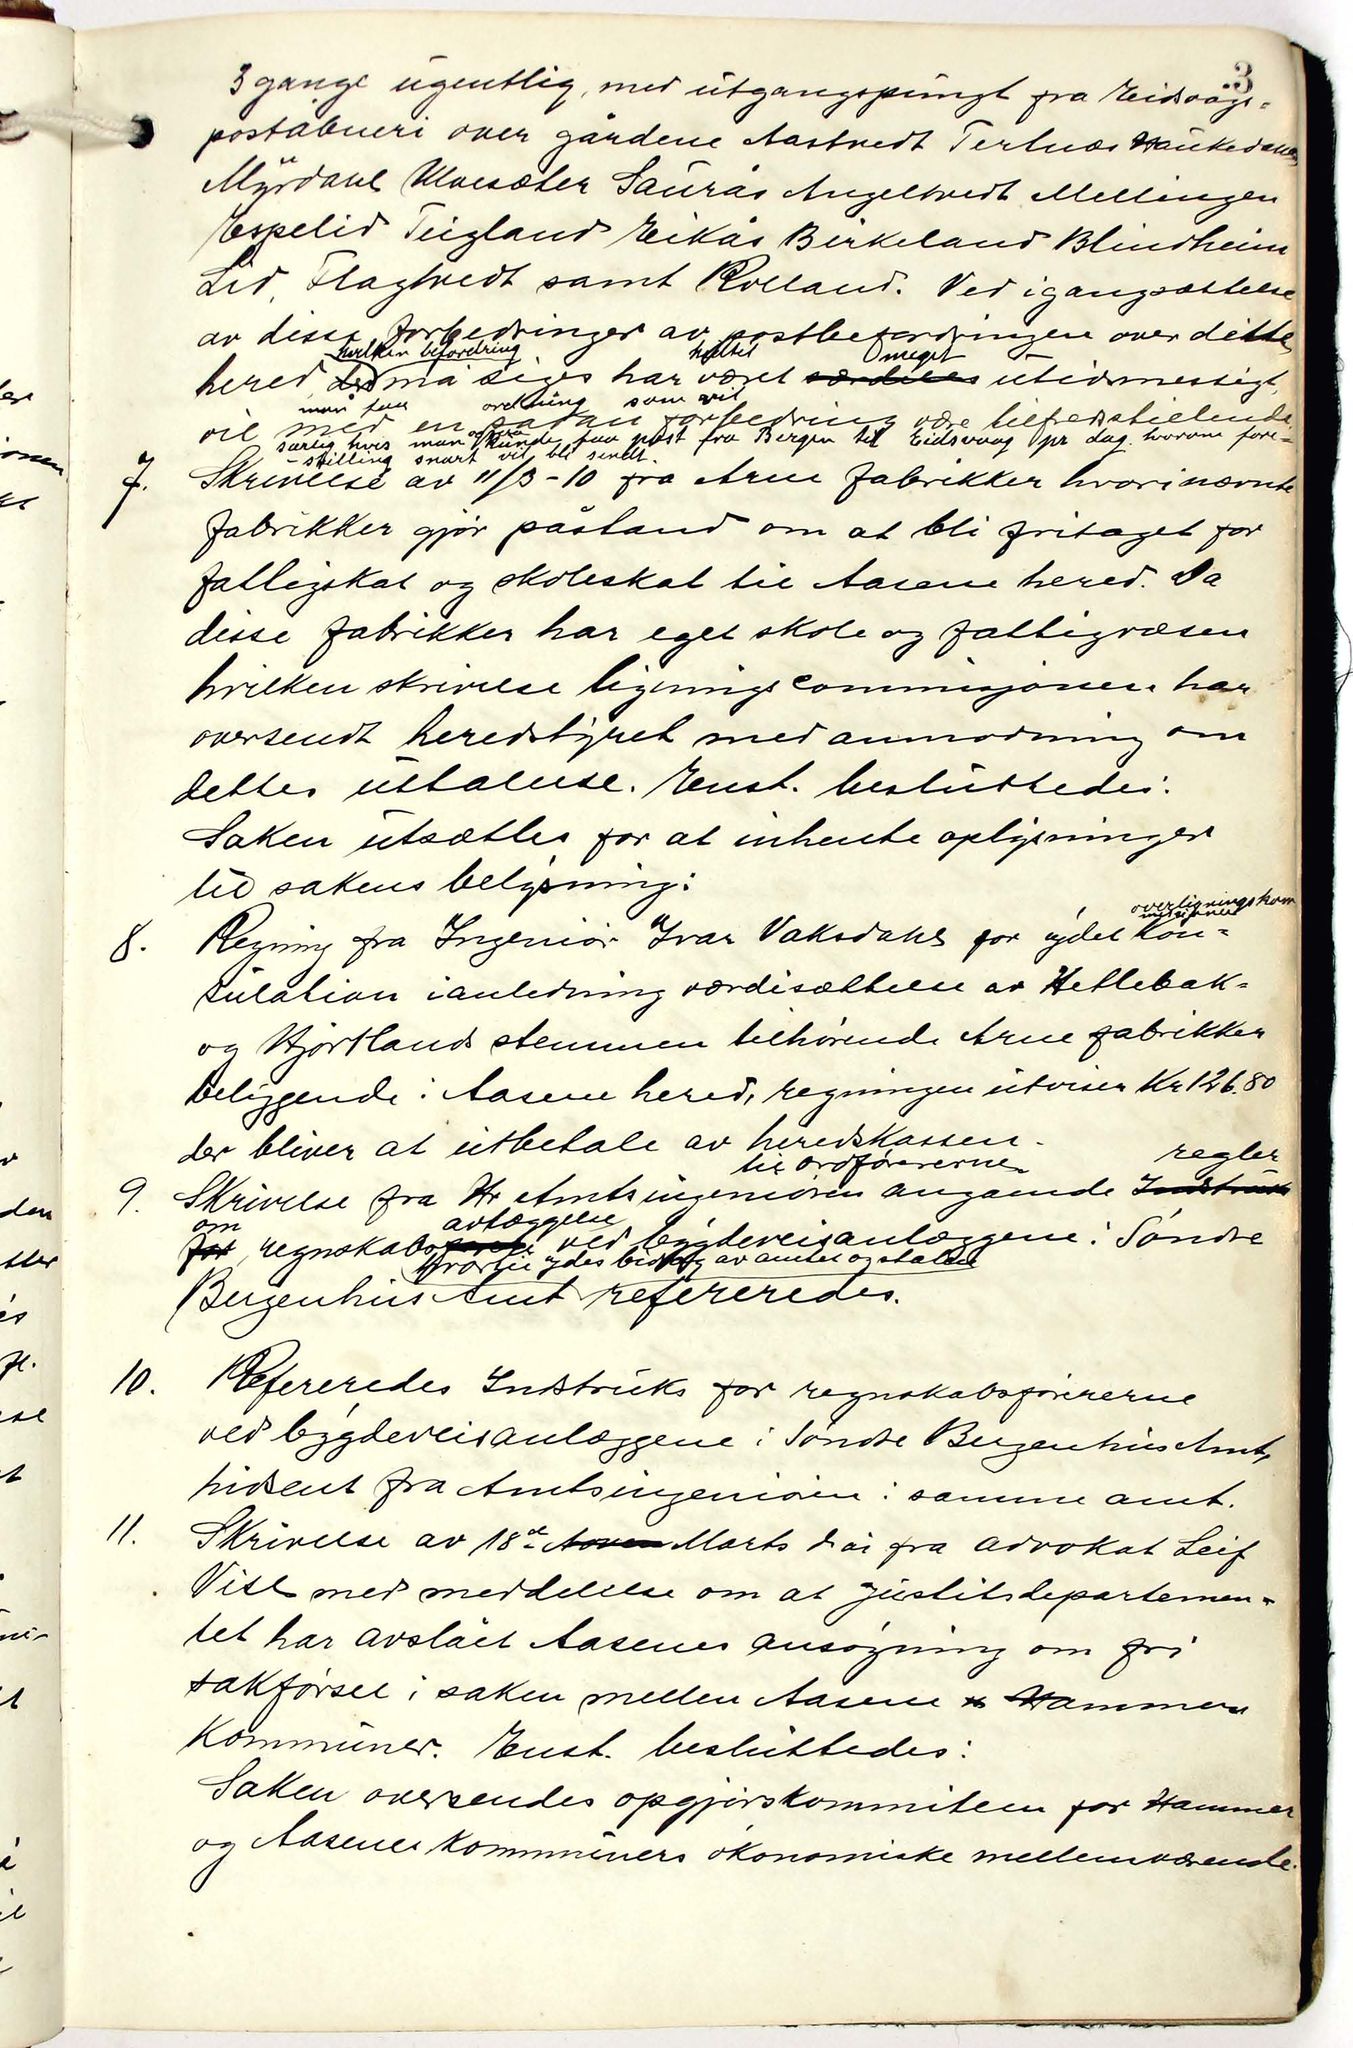 3
3 gange ugentlig, med utgangspungt fra Eidsvågs-
poståbneri over gårdene Aastvedt Tertnæs Haukedalen,
Myrdahl Ulvesæter Saurås Angeltvedt Mellingen
Espelid Teigland Eikås Birkeland Blindheim
Lid, Flagtvedt samt Rolland. Ved igangsættelse
av disse forbedringer av postbefordringen over dette
hvilken befordring hittil meget
hered, må siges har været særdeles utidsmessigt,
man faa ordning som vil
vil med en sådan forbedring være tilfredsstielende
særlig hvis man også kunde faa post fra Bergen til Eidsvaag pr dag. hvorom fore-
stilling snart vil bli sendt.
7. Skrivelse av 11/3-10 fra Arne fabrikker hvori nævnte
fabrikker gjør påstand om at bli fritaget for
fattigskat og skoleskat til Aasene hered. Da
disse fabrikker har eget skole og fattigvæsen
hvilken skrivelse ligningscommisjonen har
oversendt heredstyret med anmodning om
dettes uttalelse. Enst. besluttedes:
Saken utsættes for at inhente oplysninger
til sakens belysning:
overligningskom
misjonen
8. Regning fra Ingeniør Ivar Vaksdahl for ydet kon-
sulation i anledning værdisættelse av Hetlebak-
og Hjortlands stemmen tilhørende Arne fabrikker
beliggende i Aasene hered, regningen utviser Kr 126.80
der bliver at utbetale av heredskassen.
til ordførerne regler
9. Skrivelse fra Hr Amtsingeniøren angaaende Instruks
om avlæggelse
for regnskabs ved bygdeveisanlæggene i Søndre
hvortil ydes bidrag av amtet og staten
Bergenhus Amt refereredes.
10. Refereredes Instruks for regnskabsførererne
ved bygdeveisanlæggene i Søndre Bergenhus Amt,
hidsent fra Amtsingeniøren i samme amt.
11. Skrivelse av 18de Marts d år fra advokat Leif
Vise med meddelelse om at justitsdepartemen-
tet har avslået Aasenes ansøgning om fri
sakførsel i saken mellen Aasene & Hammers
Kommuner. Enst. besluttedes:
Saken oversendes opgjørskommiteen for Hammer
og Aasenes kommuners økonomiske mellemværende.